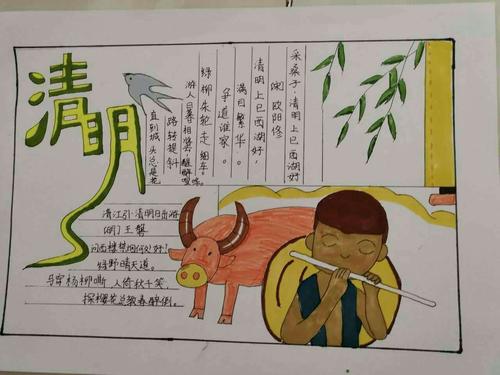 清明
采桑子·清明上巳西湖好
欧阳修
清明上巳西湖好,
满目繁华。
争道谁家。
绿柳朱轮走钿车。
游人日暮相将
路转堤斜
直到城头总是花
清江引·清明日出游
[明] 王磐
问西楼禁烟何处好?
绿野晴天道。
马穿杨柳嘶,人倚秋千笑,
探莺花总教春醉倒。